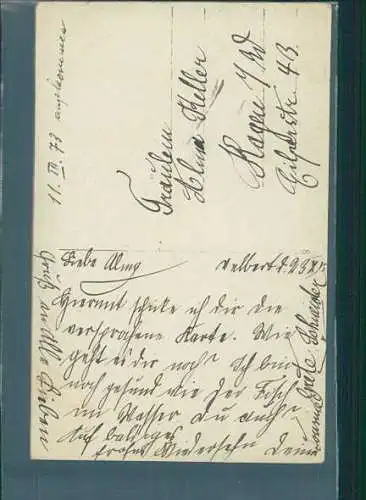 11. III. 73 angekommen
Fräulein
Alma Keller
Hagen i/W
Eilperstr. 43.
Liebe Almy
Velbert d. 23
Hiermit schicke ich dir die
versprochene Karte. Wie
geht es dir noch? Ich bin
noch gesund wie der Fisch
im Wasser du auch?
Auf baldiges
frohes Wiedersehn Deine
Grete Schneider
Gruß an Alle Lieben